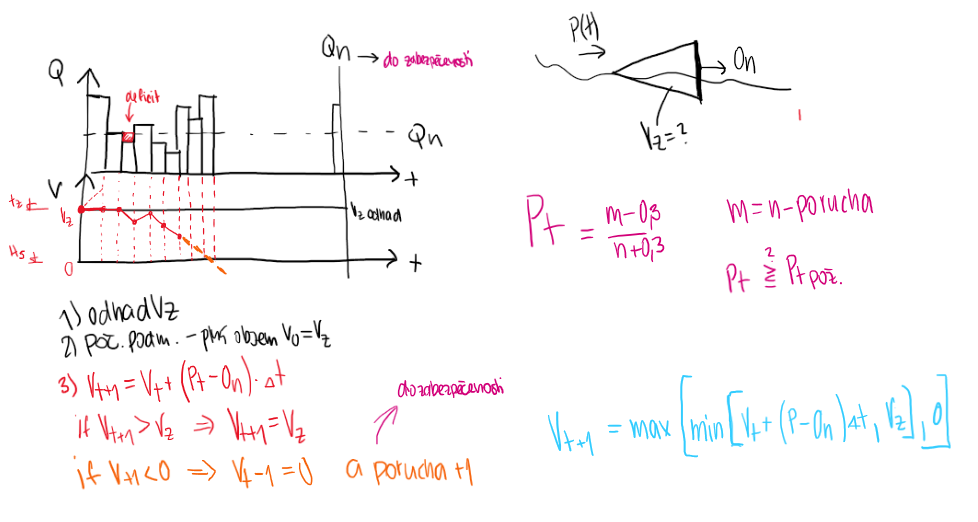 Qn → do zabezpečenosti
Q
deficit
Qn
t
V
Vz
Vz odhad
0
t
P(t)
On
Vz = ?
Pt = m-0,3 / n+0,3
m = n - porucha
Pt ≧ Pt pož.
?
1) odhad Vz
2) poč. podm. - plný objem V0 = Vz
3) Vt+1 = Vt + (Pt - On) · Δt
if Vt+1 > Vz ⇒ Vt+1 = Vz
if Vt+1 < 0 ⇒ Vt-1 = 0 a porucha +1
do zabezpečenosti
Vt+1 = max [min [Vt + (P - On) Δt, Vz], 0]